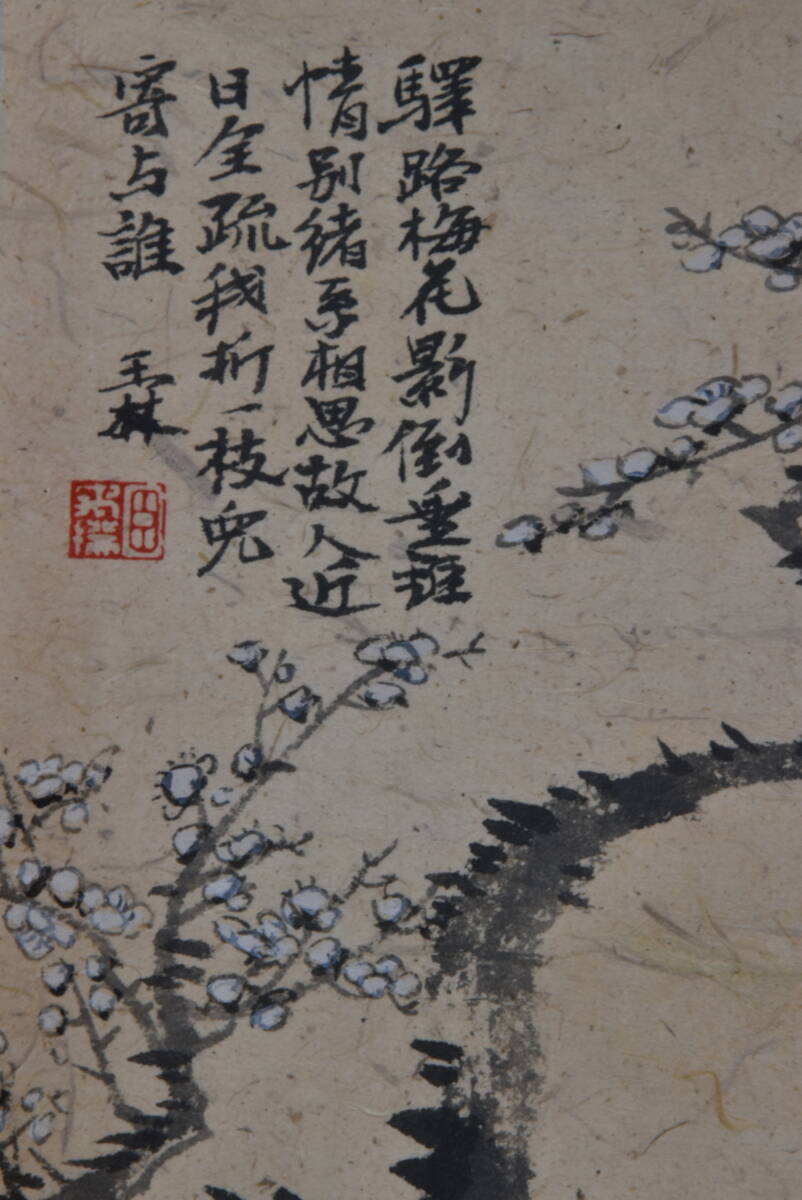 驛路梅花影倒垂離
情别緒系相思故人近
日全疏我折一枝兒
寄与誰 玉林